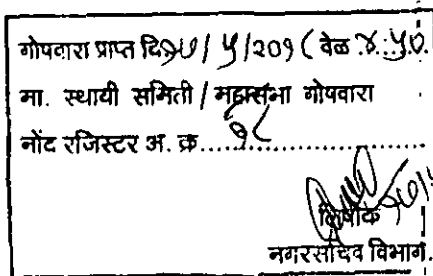 गोषवारा प्राप्त दि.१७/५/२०१८ वेळ ४:५०
मा. स्थायी समिती / महासभा गोषवारा
नोंद रजिस्टर अ. क्र. १८
लिपीक
नगरसचिव विभाग.